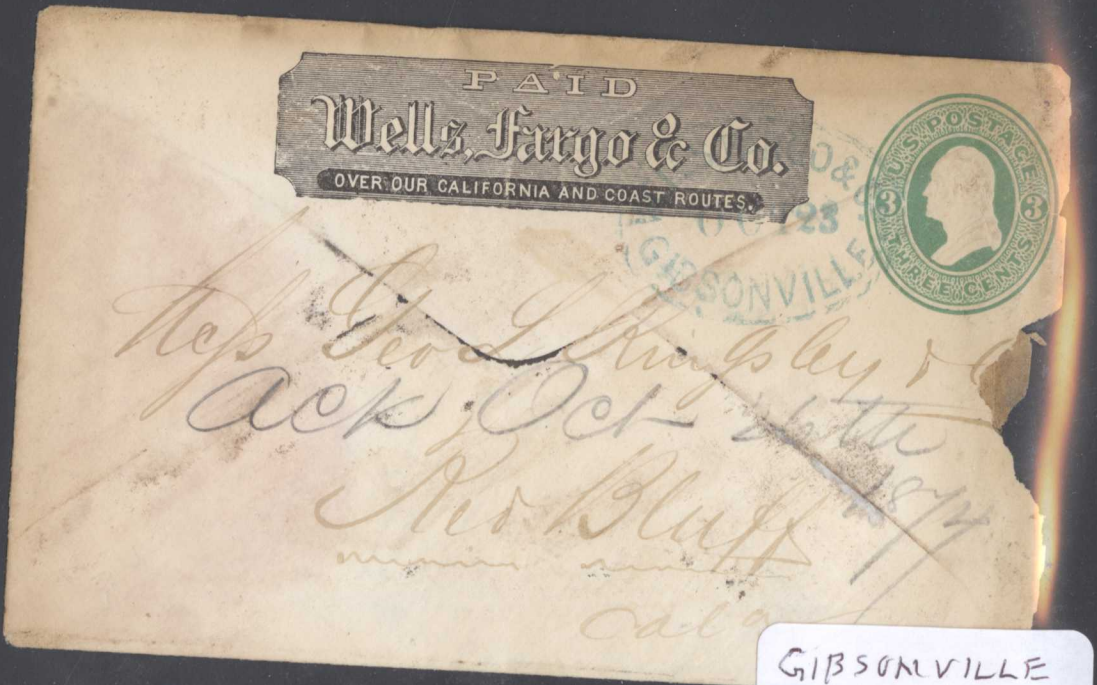 PAID
Wells, Fargo & Co.
OVER OUR CALIFORNIA AND COAST ROUTES.
U.S. POSTAGE
3 3
THREE CENTS
O&
OCT 23
GIBSONVILLE
Geo L Kingsley & Co
Ack Oct 26th
1874
Red Bluff
Cala
GIBSONVILLE